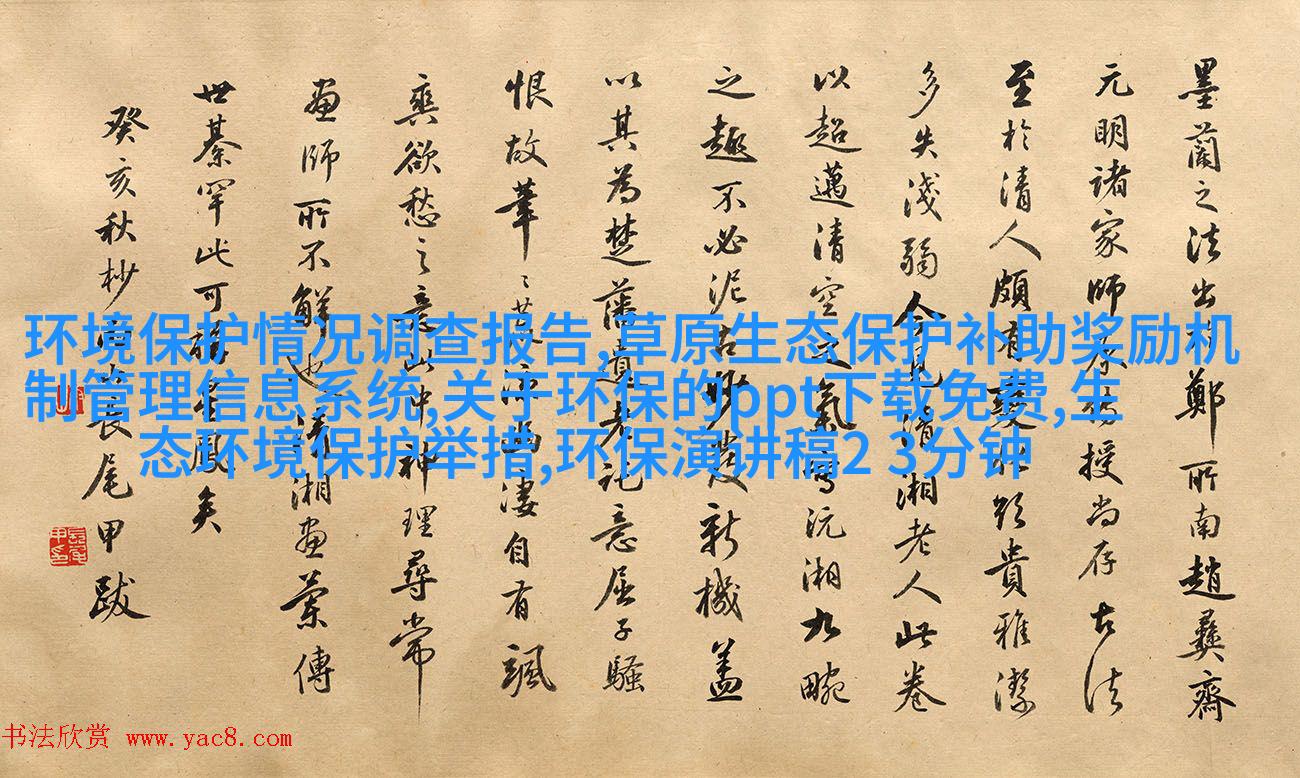 墨蘭之法出自鄭所南趙彝齋
元明諸家師授尚存古法
至於清人頗有變貴雅潔
多失淺弱今見清湘老人此卷
以超邁清空之氣寫沅湘九畹
之趣不必泥古妙發新機蓋
以其為楚藩遺老託意屈子騷
恨故幽淒自有颯
爽欲愁之意此中神理尋常
畫師所不解也清湘畫蘭傳
世綦罕此可稱星鳳矣
癸亥秋杪雨山長尾甲跋
环境保护情况调查报告,草原生态保护补助奖励机
制管理信息系统,关于环保的ppt下载免费,生
态环境保护举措,环保演讲稿2 3分钟
书法欣赏 www.yac8.com